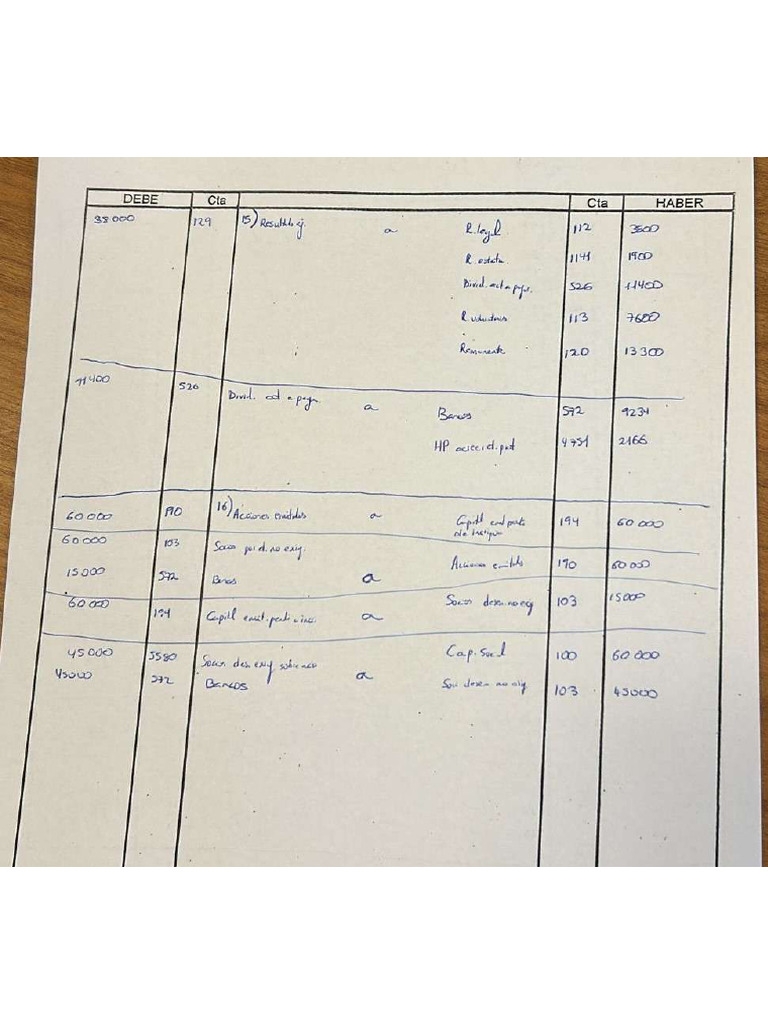 DEBE Cta Cta HABER
38000 129 15) Resultado ej. a R. legal 112 3800
R. estatu 1141 1900
Divid. act a pagar. 526 11400
R. voluntaria 113 7600
Remanente 120 13300
11400 526 Divid. act a pagar a Bancos 572 9234
HP acree. 4751 2166
60000 190 16) Acciones emitidas a Capital 194 60000
60000 103 Socios por d. no exig. a Acciones emitidas 190 60000
15000 572 Bancos a Socios desem. no exig 103 15000
60000 194 Capital emit. pend. a Cap. Social 100 60000
45000 5580 Socios des. exig a Soci desem no exig 103 45000
45000 572 Bancos